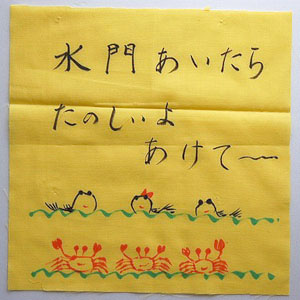 水門あいたら
たのしいよ
あけて〜